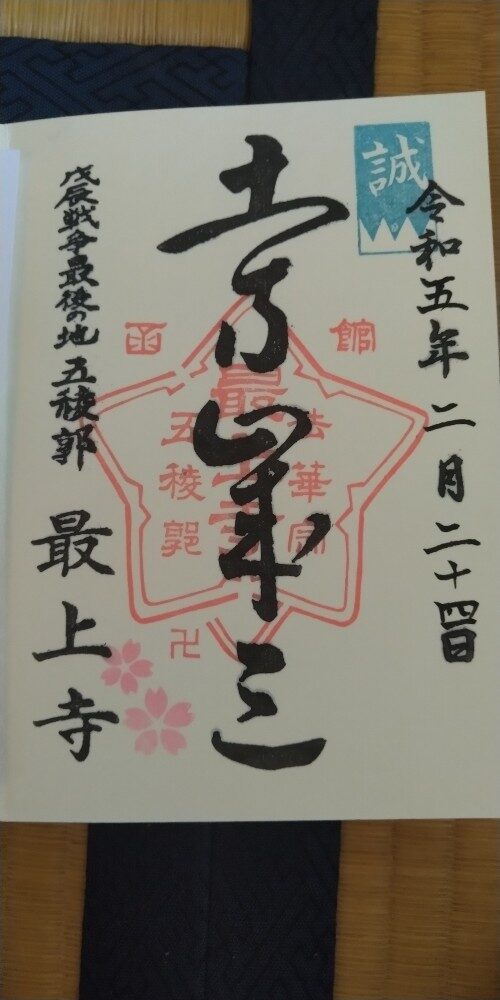 誠
令和五年二月二十四日
土方歳三
函館
法華宗
最上寺
五稜郭
卍
戊辰戦争最後の地 五稜郭
最上寺